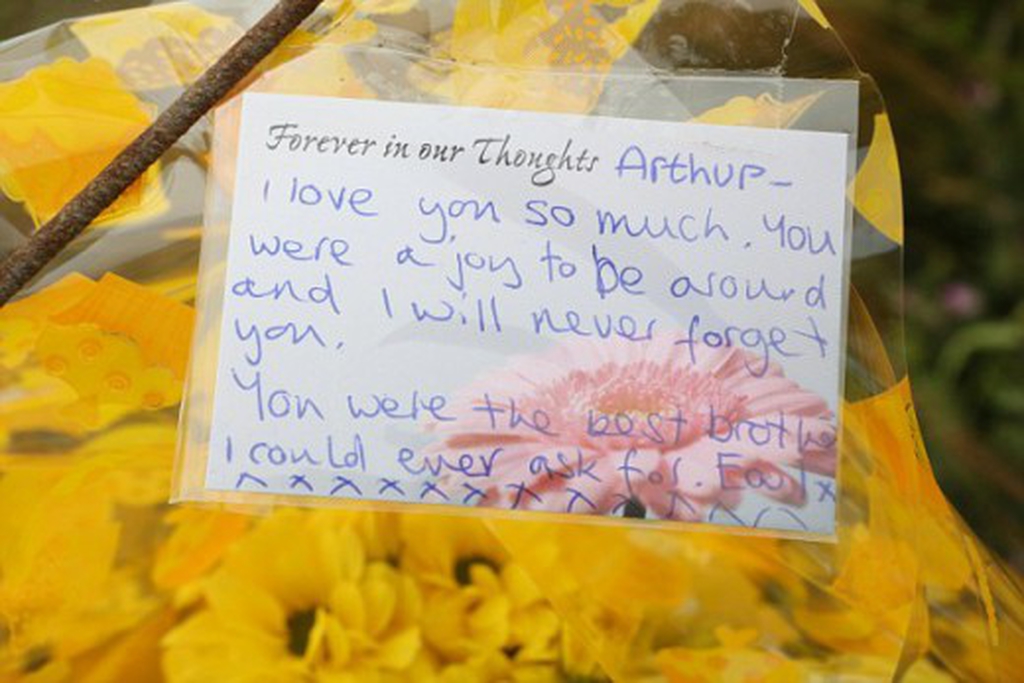 Forever in our Thoughts Arthur-
I love you so much. You
were a joy to be around
and I will never forget
you.
You were the best brother
I could ever ask for. Earl x
x x x x x x x x x x